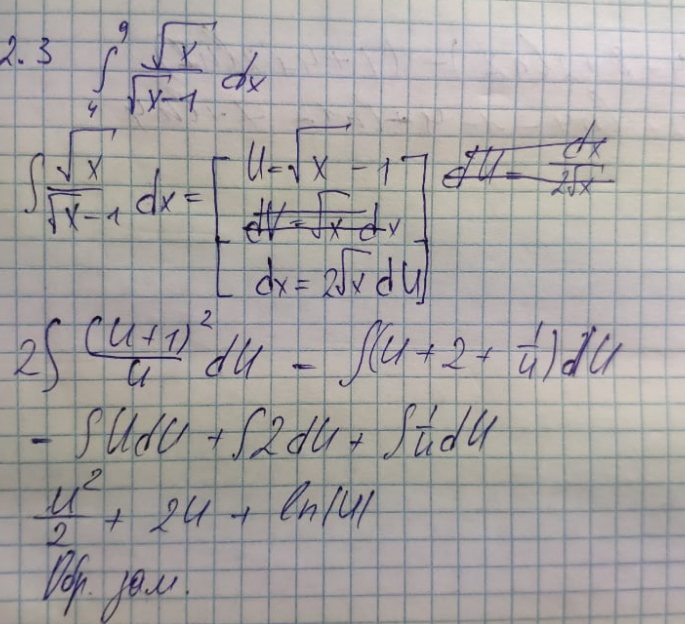 2.3 ∫₄⁹ √x/(√x-1) dx
∫ √x/(√x-1) dx = [ U=√x - 1
dV=√x dx
dx = 2√x dU ] dU = dx/(2√x)
2∫ (U+1)²/U dU - ∫(U + 2 + 1/U) dU
- ∫UdU + ∫2dU + ∫1/U dU
U²/2 + 2U + ln|U|
Обр. зам.